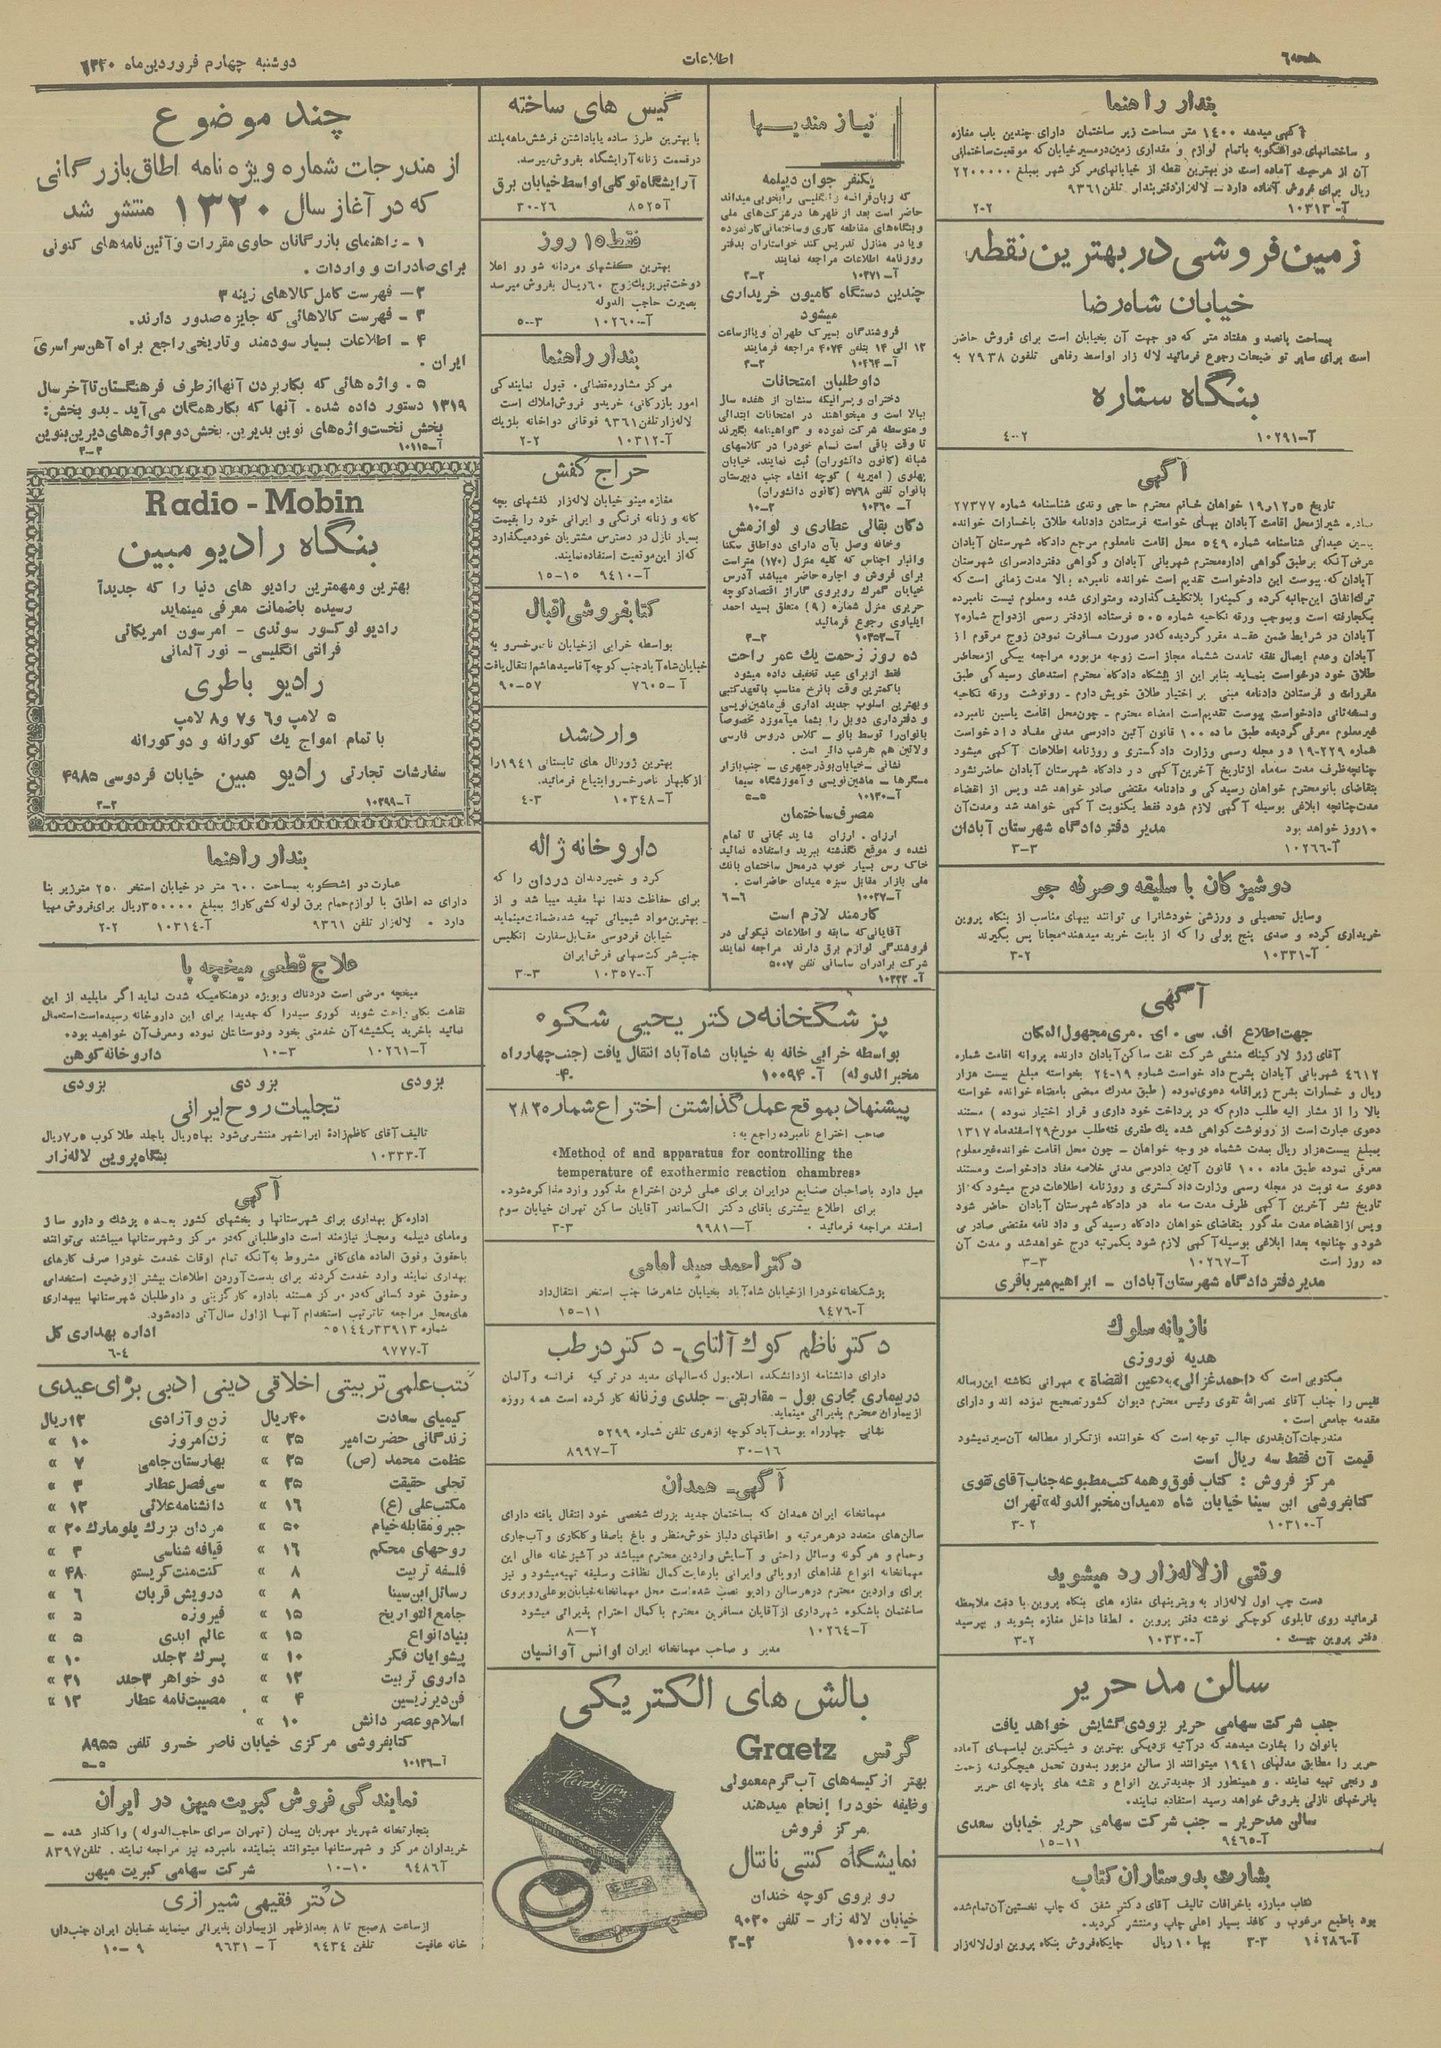 صفحه ۶
اطلاعات
دوشنبه چهارم فروردین‌ماه ۱۳۲۰
بندار راهنما
آگهی میدهد ۱۴۰۰ متر مساحت زیر ساختمان دارای چندین باب مغازه
و ساختمانهای دواشگوبه باتمام لوازم و مقداری زمین درمسیرخیابان که موقعیت ساختمانی
آن از هرحیث آماده است در بهترین نقطه از خیابانهای مرکز شهر بمبلغ ۲۲۰۰۰۰۰
ریال برای فروش آماده دارد – لاله‌زار دفتر بندار تلفن ۹۳۶۱
آ–۱۰۳۱۳ ۲–۲
زمین فروشی در بهترین نقطه
خیابان شاه رضا
بمساحت پانصد و هفتاد متر که دو جهت آن بخیابان است برای فروش حاضر
است برای سایر تو ضیحات رجوع فرمائید لاله زار اواسط رفاهی تلفون ۷۹۳۸ به
بنگاه ستاره
آ–۱۰۲۹۱ ۲–۴
آگهی
تاریخ ۱۹٫۱۲٫۵ خواهان خانم محترم حاجی وندی شناسنامه شماره ۲۷۳۷۷
شیراز محل اقامت آبادان بهای خواسته فرستادن دادنامه طلاق باخسارات خوانده
یاسین عبدائی شناسنامه شماره ۵۴۹ محل اقامت نامعلوم مرجع دادگاه شهرستان آبادان
عرض آنکه برطبق گواهی اداره محترم شهربانی آبادان و گواهی دفتر دادسرای شهرستان
آبادان که پیوست این دادخواست تقدیم است خوانده نامبرده بالا مدت زمانی است که
ترك انفاق این جانبه کرده و کمینه را بلاتکلیف گذارده ومتواری شده ومعلوم نیست نامبرده
بکجارفته است وبموجب ورقه نکاحیه شماره ۵۰۵ فرستاده ازدفتر رسمی ازدواج شماره ۲
آبادان در شرایط ضمن عقد مقرر گردیده که در صورت مسافرت نمودن زوج مرقوم از
آبادان وعدم ایصال نفقه تامدت ششماه مجاز است زوجه مزبوره مراجعه بیکی ازمحاضر
طلاق خود درخواست بنماید بنابر این از پیشگاه دادگاه محترم استدعای رسیدگی طبق
مقررات و فرستادن دادنامه مبنی بر اختیار طلاق خویش دارم – رونوشت ورقه نکاحیه
ونسخه ثانی دادخواست پیوست تقدیم است امضاء محترم – چون محل اقامت یاسین نامبرده
غیرمعلوم معرفی گردیده طبق ماده ۱۰۰ قانون آئین دادرسی مدنی مفاد دادخواست
شماره ۲۲۹–۱۹ در مجله رسمی وزارت دادگستری و روزنامه اطلاعات آگهی میشود
چنانچه ظرف مدت سه ماه ازتاریخ آخرین آگهی در دادگاه شهرستان آبادان حاضر نشود
بتقاضای بانو محترم خواهان رسیدگی و دادنامه مقتضی صادر خواهد شد وپس از انقضاء
مدت چنانچه ابلاغی بوسیله آگهی لازم شود فقط یکنوبت آگهی خواهد شد ومدت آن
۱۰ روز خواهد بود مدیر دفتر دادگاه شهرستان آبادان
آ–۱۰۲۶۶ ۳–۳
دوشیزگان با سلیقه وصرفه جو
وسایل تحصیلی و ورزشی خودشانرا می توانند ببهای مناسب از بنگاه پروین
خریداری کرده و صدی پنج پولی را که از بابت خرید میدهند مجانا پس بگیرند
آ–۱۰۳۳۱ ۲–۳
آگهی
جهت اطلاع اف. سی. ای. مری مجهول المکان
آقای ژرژ لارکینك منشی شرکت نفت ساکن آبادان دارنده پروانه اقامت شماره
۴۶۱۲ شهربانی آبادان بشرح داد خواست شماره ۱۹–۲۴ بخواسته مبلغ بیست هزار
ریال و خسارات بشرح زیر اقامه دعوی نموده (طبق مدرك ممضی بامضاء خوانده خواسته
بالا را از مشار الیه طلب دارم که در پرداخت خود داری و فرار اختیار نموده) مستند
دعوی عبارت است از رونوشت گواهی شده یك طغری فته طلب مورخ ۲۹ اسفندماه ۱۳۱۷
بمبلغ بیست هزار ریال بمدت ششماه در وجه خواهان – چون محل اقامت خوانده غیرمعلوم
معرفی نموده طبق ماده ۱۰۰ قانون آئین دادرسی مدنی خلاصه مفاد دادخواست ومستند
دعوی سه نوبت در مجله رسمی وزارت دادگستری و روزنامه اطلاعات درج میشود که از
تاریخ نشر آخرین آگهی ظرف مدت سه ماه در دادگاه شهرستان آبادان حاضر شود
وپس ازانقضاء مدت مذکور بتقاضای خواهان دادگاه رسیدگی و دادنامه مقتضی صادر می
شود و چنانچه بعدا ابلاغی بوسیله آگهی لازم شود یکمرتبه درج خواهدشد و مدت آن
ده روز است آ–۱۰۲۶۷ ۳–۳
مدیر دفتر دادگاه شهرستان آبادان – ابراهیم میر باقری
تازیانه سلوك
هدیه نوروزی
مکتوبی است که «احمد غزالی» به «عین القضاة» مهرانی نگاشته این رساله
نفیس را جناب آقای نصرالله تقوی رئیس محترم دیوان کشور تصحیح نموده اند و دارای
مقدمه جامعی است.
مندرجات آن بقدری جالب توجه است که خواننده ازتکرار مطالعه آن سیر نمیشود
قیمت آن فقط سه ریال است
مرکز فروش: کتاب فوق وهمه کتب مطبوعه جناب آقای تقوی
کتابفروشی ابن سینا خیابان شاه «میدان مخبرالدوله» تهران
آ–۱۰۳۱۰ ۲–۳
وقتی از لاله‌زار رد میشوید
دست چپ اول لاله‌زار به ویترینهای مغازه های بنگاه پروین با دقت ملاحظه
فرمائید روی تابلوی کوچکی نوشته دفتر پروین. لطفا داخل مغازه بشوید و بپرسید
دفتر پروین چیست. آ–۱۰۳۳۰ ۲–۳
سالن مد حریر
جنب شرکت سهامی حریر بزودی گشایش خواهد یافت
بانوان را بشارت میدهد که درآتیه نزدیکی بهترین و شیکترین لباسهای آماده
حریر را مطابق مدلهای ۱۹۴۱ میتوانند از سالن مزبور بدون تحمل هیچگونه زحمت
و رنجی تهیه نمایند. و همینطور از جدیدترین انواع و نقشه های پارچه ای حریر
بانرخهای نازلی بفروش خواهد رسید استفاده نمایند.
سالن مد حریر – جنب شرکت سهامی حریر خیابان سعدی
آ–۹۴۶۵ ۱۱–۱۵
بشارت بدوستاران کتاب
کتاب مبارزه باخرافات تالیف آقای دکتر شفق که چاپ نخستین آن تمام شده
بود باطبع مرغوب و کاغذ بسیار اعلی چاپ ومنتشر گردید.
آ–۱۰۲۸۶ ۳–۳ بها ۱۰ ریال جایگاه فروش بنگاه پروین اول لاله‌زار
نیازمندیها
یکنفر جوان دیپلمه
که زبان فرانسه و انگلیسی را بخوبی میداند
حاضر است بعد از ظهرها درشرکت های ملی
وبنگاه‌های مقاطعه کاری وساختمانی کار نموده
ویا در منازل تدریس کند خواستاران بدفتر
روزنامه اطلاعات مراجعه نمایند
آ–۱۰۲۷۱ ۲–۲
چندین دستگاه کامیون خریداری
میشود
فروشندگان بسیرك طهران ویا ازساعت
۱۲ الی ۱۴ بتلفن ۴۰۷۴ مراجعه فرمایند
آ–۱۰۲۶۴ ۲–۲
داوطلبان امتحانات
دختران و پسرانیکه سنشان از هفده سال
ببالا است و میخواهند در امتحانات ابتدائی
و متوسطه شرکت نموده و گواهینامه بگیرند
تا وقت باقی است نام خودرا در کلاسهای
شبانه (کانون دانشوران) ثبت نمایند. خیابان
پهلوی (امیریه) کوچه انشاء جنب دبیرستان
بانوان تلفن ۵۷۶۸ (کانون دانشوران)
آ–۱۰۲۶۰ ۲–۱۰
دکان بقالی عطاری و لوازمش
وخانه وصل بآن دارای دواطاق سکنا
وانبار اجناس که کلیه منزل (۱۷۰) متراست
برای فروش و اجاره حاضر میباشد آدرس
خیابان گمرك روبروی گاراژ اقتصاد کوچه
حریری منزل شماره (۹) متعلق بسید احمد
ایلیاوی رجوع فرمائید
آ–۱۰۲۵۲ ۲–۲
ده روز زحمت یك عمر راحت
فقط ازبرای عید تخفیف داده میشود
باکمترین وقت بانرخ مناسب باتعهد کتبی
وبهترین اسلوب جدید اداری فن ماشین‌نویسی
و دفترداری دوبل را بشما میآموزد مخصوصا
بانوان را توسط بانو – کلاس دروس فارسی
ولاتین هم هرشب دائر است.
نشانی – خیابان بوذرجمهری – جنب بازار
مسگرها – ماشین‌نویسی و آموزشگاه سیما
آ–۱۰۱۲۰ ۵–۵
مصرف ساختمان
ارزان. ارزان. شاید مجانی تا تمام
نشده و موقع نگذشته ببرید واستفاده نمائید
خاك رس بسیار خوب درمحل ساختمان بانك
ملی بازار مقابل سبزه میدان حاضراست.
آ–۱۰۰۲۷ ۶–۶
کارمند لازم است
آقایانی که سابقه و اطلاعات نیکوئی در
فروشندگی لوازم برق دارند مراجعه نمایند
شرکت برادران ساسانی تلفن ۵۰۰۷
آ–۱۰۲۲۲
گیس های ساخته
با بهترین طرز ساده یا باداشتن فرشش‌ماهه بلند
درقسمت زنانه آرایشگاه بفروش میرسد.
آرایشگاه توکلی اواسط خیابان برق
آ–۸۵۲۵ ۲۶–۳۰
فقط ۱۵ روز
بهترین کفشهای مردانه شو رو اعلا
دوخت تبریز یك زوج ۶۰ ریال بفروش میرسد
بصیرت حاجب الدوله
آ–۱۰۲۶۰ ۳–۵
بندار راهنما
مرکز مشاوره قضائی. قبول نمایندگی
امور بازرگانی، خرید و فروش املاك است
لاله‌زار تلفن ۹۳۶۱ فوقانی دواخانه بلژیك
آ–۱۰۳۱۲ ۲–۲
حراج کفش
مغازه مینو خیابان لاله‌زار کفشهای بچه
گانه و زنانه فرنگی و ایرانی خود را بقیمت
بسیار نازل در دسترس مشتریان خود میگذارد
که از این موقعیت استفاده نمایند.
آ–۹۴۱۰ ۱۵–۱۵
کتابفروشی اقبال
بواسطه خرابی ازخیابان ناصرخسرو به
خیابان شاه آباد جنب کوچه آقاسیدهاشم انتقال یافت
آ–۷۶۰۵ ۵۷–۹۰
وارد شد
بهترین ژورنال های تابستانی ۱۹۴۱ را
ازکابهار ناصرخسرو ابتیاع فرمائید.
آ–۱۰۳۴۸ ۳–۴
داروخانه ژاله
کرد و خمیردندان دردان را که
برای حفاظت دندا نها مفید میبا شد و از
بهترین مواد شیمیائی تهیه شده ضمانت مینماید
خیابان فردوسی مقابل سفارت انگلیس
جنب شرکت سهامی فرش ایران
آ–۱۰۳۵۷ ۳–۳۰
پزشگخانه دکتر یحیی شکوه
بواسطه خرابی خانه به خیابان شاه آباد انتقال یافت (جنب چهارراه
مخبرالدوله) آ. ۱۰۰۹۴ ۴۰–
پیشنهاد بموقع عمل گذاشتن اختراع شماره ۲۸۳۵
صاحب اختراع نامبرده راجع به:
«Method of and apparatus for controlling the
temperature of exothermic reaction chambres»
میل دارد باصاحبان صنایع درایران برای عملی کردن اختراع مذکور وارد مذاکره شود.
برای اطلاع بیشتری باقای دکتر الکساندر آقایان ساکن تهران خیابان سوم
اسفند مراجعه فرمائید. آ–۹۹۸۱ ۳–۳
دکتر احمد سید امامی
پزشکخانه خودرا ازخیابان شاه آباد بخیابان شاهرضا جنب استخر انتقال داد
آ–۹۴۷۶ ۱۱–۱۵
دکتر ناظم کوك آلتای – دکتر درطب
دارای دانشنامه ازدانشکده اسلامبول که سالهای مدید در ترکیه فرانسه و آلمان
در بیماری مجاری بول – مقاربتی – جلدی وزنانه کار کرده است همه روزه
از بیماران محترم پذیرائی مینماید.
نشانی چهارراه یوسف آباد کوچه ازهری تلفن شماره ۵۲۹۹
آ–۸۹۹۷ ۱۶–۳۰
آگهی – همدان
مهمانخانه ایران همدان که بساختمان جدید بزرك شخصی خود انتقال یافته دارای
سالن‌های متعدد درهرمرتبه و اطاقهای دلباز خوش منظر و باغ باصفا و گلکاری و آب جاری
وحمام و هر گونه وسائل راحتی و آسایش واردین محترم میباشد در آشپزخانه عالی این
مهمانخانه انواع غذاهای اروپائی وایرانی بارعایت کمال نظافت وسلیقه تهیه میشود و نیز
برای واردین محترم درهرسالن رادیو نصب شده است محل مهمانخانه خیابان بوعلی روبروی
ساختمان باشکوه شهرداری ازآقایان مسافرین محترم با کمال احترام پذیرائی میشود
آ–۱۰۲۶۴ ۲–۸
مدیر و صاحب مهمانخانه ایران اوانس آوانسیان
بالش های الکتریکی
گرتس Graetz
بهتر از کیسه‌های آب گرم معمولی
وظیفه خود را انجام میدهند
مرکز فروش
نمایشگاه کنتی نانتال
رو بروی کوچه خندان
خیابان لاله زار – تلفن ۹۰۳۰
آ–۱۰۰۰۰ ۲–۲
Herzkissen
چند موضوع
از مندرجات شماره ویژه نامه اطاق بازرگانی
که در آغاز سال ۱۳۲۰ منتشر شد
۱ – راهنمای بازرگانان حاوی مقررات و آئین نامه های کنونی
برای صادرات و واردات.
۲ – فهرست کامل کالاهای زینه ۳
۳ – فهرست کالاهائی که جایزه صدور دارند.
۴ – اطلاعات بسیار سودمند وتاریخی راجع براه آهن سراسری
ایران.
۵. واژه هائی که بکاربردن آنها ازطرف فرهنگستان تا آخر سال
۱۳۱۹ دستور داده شده. آنها که بکار همگان می‌آید – بدو بخش:
بخش نخست واژه‌های نوین بدیرین. بخش دوم واژه‌های دیرین بنوین
آ–۱۰۱۱۵ ۳–۳
Radio - Mobin
بنگاه رادیو مبین
بهترین ومهمترین رادیو های دنیا را که جدیداً
رسیده باضمانت معرفی مینماید
رادیو لوکسور سوئدی – امرسون امریکائی
فرانتی انگلیسی – نور آلمانی
رادیو باطری
۵ لامپ و ۶ و ۷ و ۸ لامپ
با تمام امواج یك کورانه و دو کورانه
سفارشات تجارتی رادیو مبین خیابان فردوسی ۴۹۸۵
آ–۱۰۲۹۹ ۲–۲
بندار راهنما
عمارت دو اشکوبه بمساحت ۶۰۰ متر در خیابان استخر ۲۵۰ مترزیر بنا
دارای ده اطاق با لوازم حمام برق لوله کشی گاراژ بمبلغ ۳۵۰۰۰۰ ریال برای فروش مهیا
دارد. لاله‌زار تلفن ۹۳۶۱ آ–۱۰۳۱۴ ۲–۲
علاج قطعی میخچه پا
میخچه مرضی است دردناك وبویژه درهنگامیکه شدت نماید اگر مایلید از این
نقاهت بکلی راحت شوید کوری سید را که جدیدا برای این داروخانه رسیده است استعمال
نمائید باخرید یکشیشه آن خدمتی بخود ودوستانتان نموده ومعرف آن خواهید بود.
آ–۱۰۲۶۱ ۳–۱۰ داروخانه کوهن
بزودی بزودی بزودی
تجلیات روح ایرانی
تالیف آقای کاظم‌زادهٔ ایرانشهر منتشر می‌شود بهاه ریال باجلد طلاکوب ۷٫۵ ریال
آ–۱۰۳۳۳ بنگاه پروین لاله‌زار
آگهی
اداره کل بهداری برای شهرستانها و بخشهای کشور بعده پزشك و دارو ساز
ومامای دیپلمه ومجاز نیازمند است داوطلبانی که در مرکز وشهرستانها میباشند می‌توانند
باحقوق وفوق العاده های کافی مشروط به آنکه تمام اوقات خدمت خودرا صرف کارهای
بهداری نمایند وارد خدمت گردند برای بدست آوردن اطلاعات بیشتر ازوضعیت استخدامی
وحقوق خود کسانی که در مرکز هستند باداره کارگزینی و داوطلبان شهرستانها ببهداری
های محل مراجعه تاترتیب استخدام آنها ازاول سال آتی داده شود.
شماره ۵۱۴۴٫۳۳۹۱۳ اداره بهداری کل
آ–۹۷۷۷ ۴–۶
کتب علمی تربیتی اخلاقی دینی ادبی برای عیدی
کیمیای سعادت ۴۰ ریال زن و آزادی ۱۲ ریال
زندگانی حضرت امیر ۲۵ » زن امروز ۱۰ »
عظمت محمد (ص) ۲۵ » بهارستان جامی ۷ »
تجلی حقیقت ۲۵ » سی فصل عطار ۳ »
مکتب علی (ع) ۱۶ » دانشنامه علائی ۱۲ »
جبر و مقابله خیام ۵۰ » مردان بزرك پلومارك ۲۰ »
روحهای محکم ۱۶ » قیافه شناسی ۳ »
فلسفه تربیت ۸ » کنت منت کریستو ۴۸ »
رسائل ابن سینا ۸ » درویش قربان ۶ »
جامع التواریخ ۱۵ » فیروزه ۵ »
بنیاد انواع ۱۵ » عالم ابدی ۵ »
پیشوایان فکر ۱۰ » پسرك ۲ جلد ۱۰ »
داروی تربیت ۱۲ » دو خواهر ۳ جلد ۲۱ »
فن دبیزیسین ۴ » مصیبت نامه عطار ۱۲ »
اسلام و عصر دانش ۱۰ »
کتابفروشی مرکزی خیابان ناصر خسرو تلفن ۸۹۵۵
آ–۱۰۱۲۶ ۵–۵
نمایندگی فروش کبریت میهن در ایران
بتجارتخانه شهریار مهربان پیمان (تهران سرای حاجب الدوله) واگذار شده –
خریداران مرکز و شهرستانها میتوانند بنماینده نامبرده نیز مراجعه نمایند. تلفن ۸۳۹۷
آ–۹۴۸۶ ۱۰–۱۰ شرکت سهامی کبریت میهن
دکتر فقیهی شیرازی
ازساعت ۸ صبح تا ۸ بعدازظهر ازبیماران پذیرائی مینماید خیابان ایران جنب دار
خانه عافیت تلفن ۹۴۳۴ آ–۹۶۳۱ ۹–۱۰